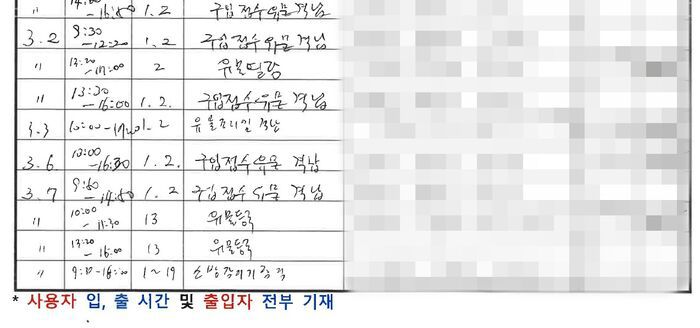 〃 14:00 -16:50 1.2 구입접수유물 격납
3.2 9:30 -12:20 1.2 구입접수유물 격납
〃 13:30 -17:00 2 유물
〃 13:30 -16:00 1.2. 구입접수유물 격납
3.3 10:00- 1.2 유물 격납
3.6 10:00 -16:30 1.2. 구입접수유물 격납
3.7 1.2 구입접수유물 격납
〃 10:00 -11:30 13 유물등록
〃 13:30 -16:00 13 유물등록
〃 1~19
* 사용자 입, 출 시간 및 출입자 전부 기재